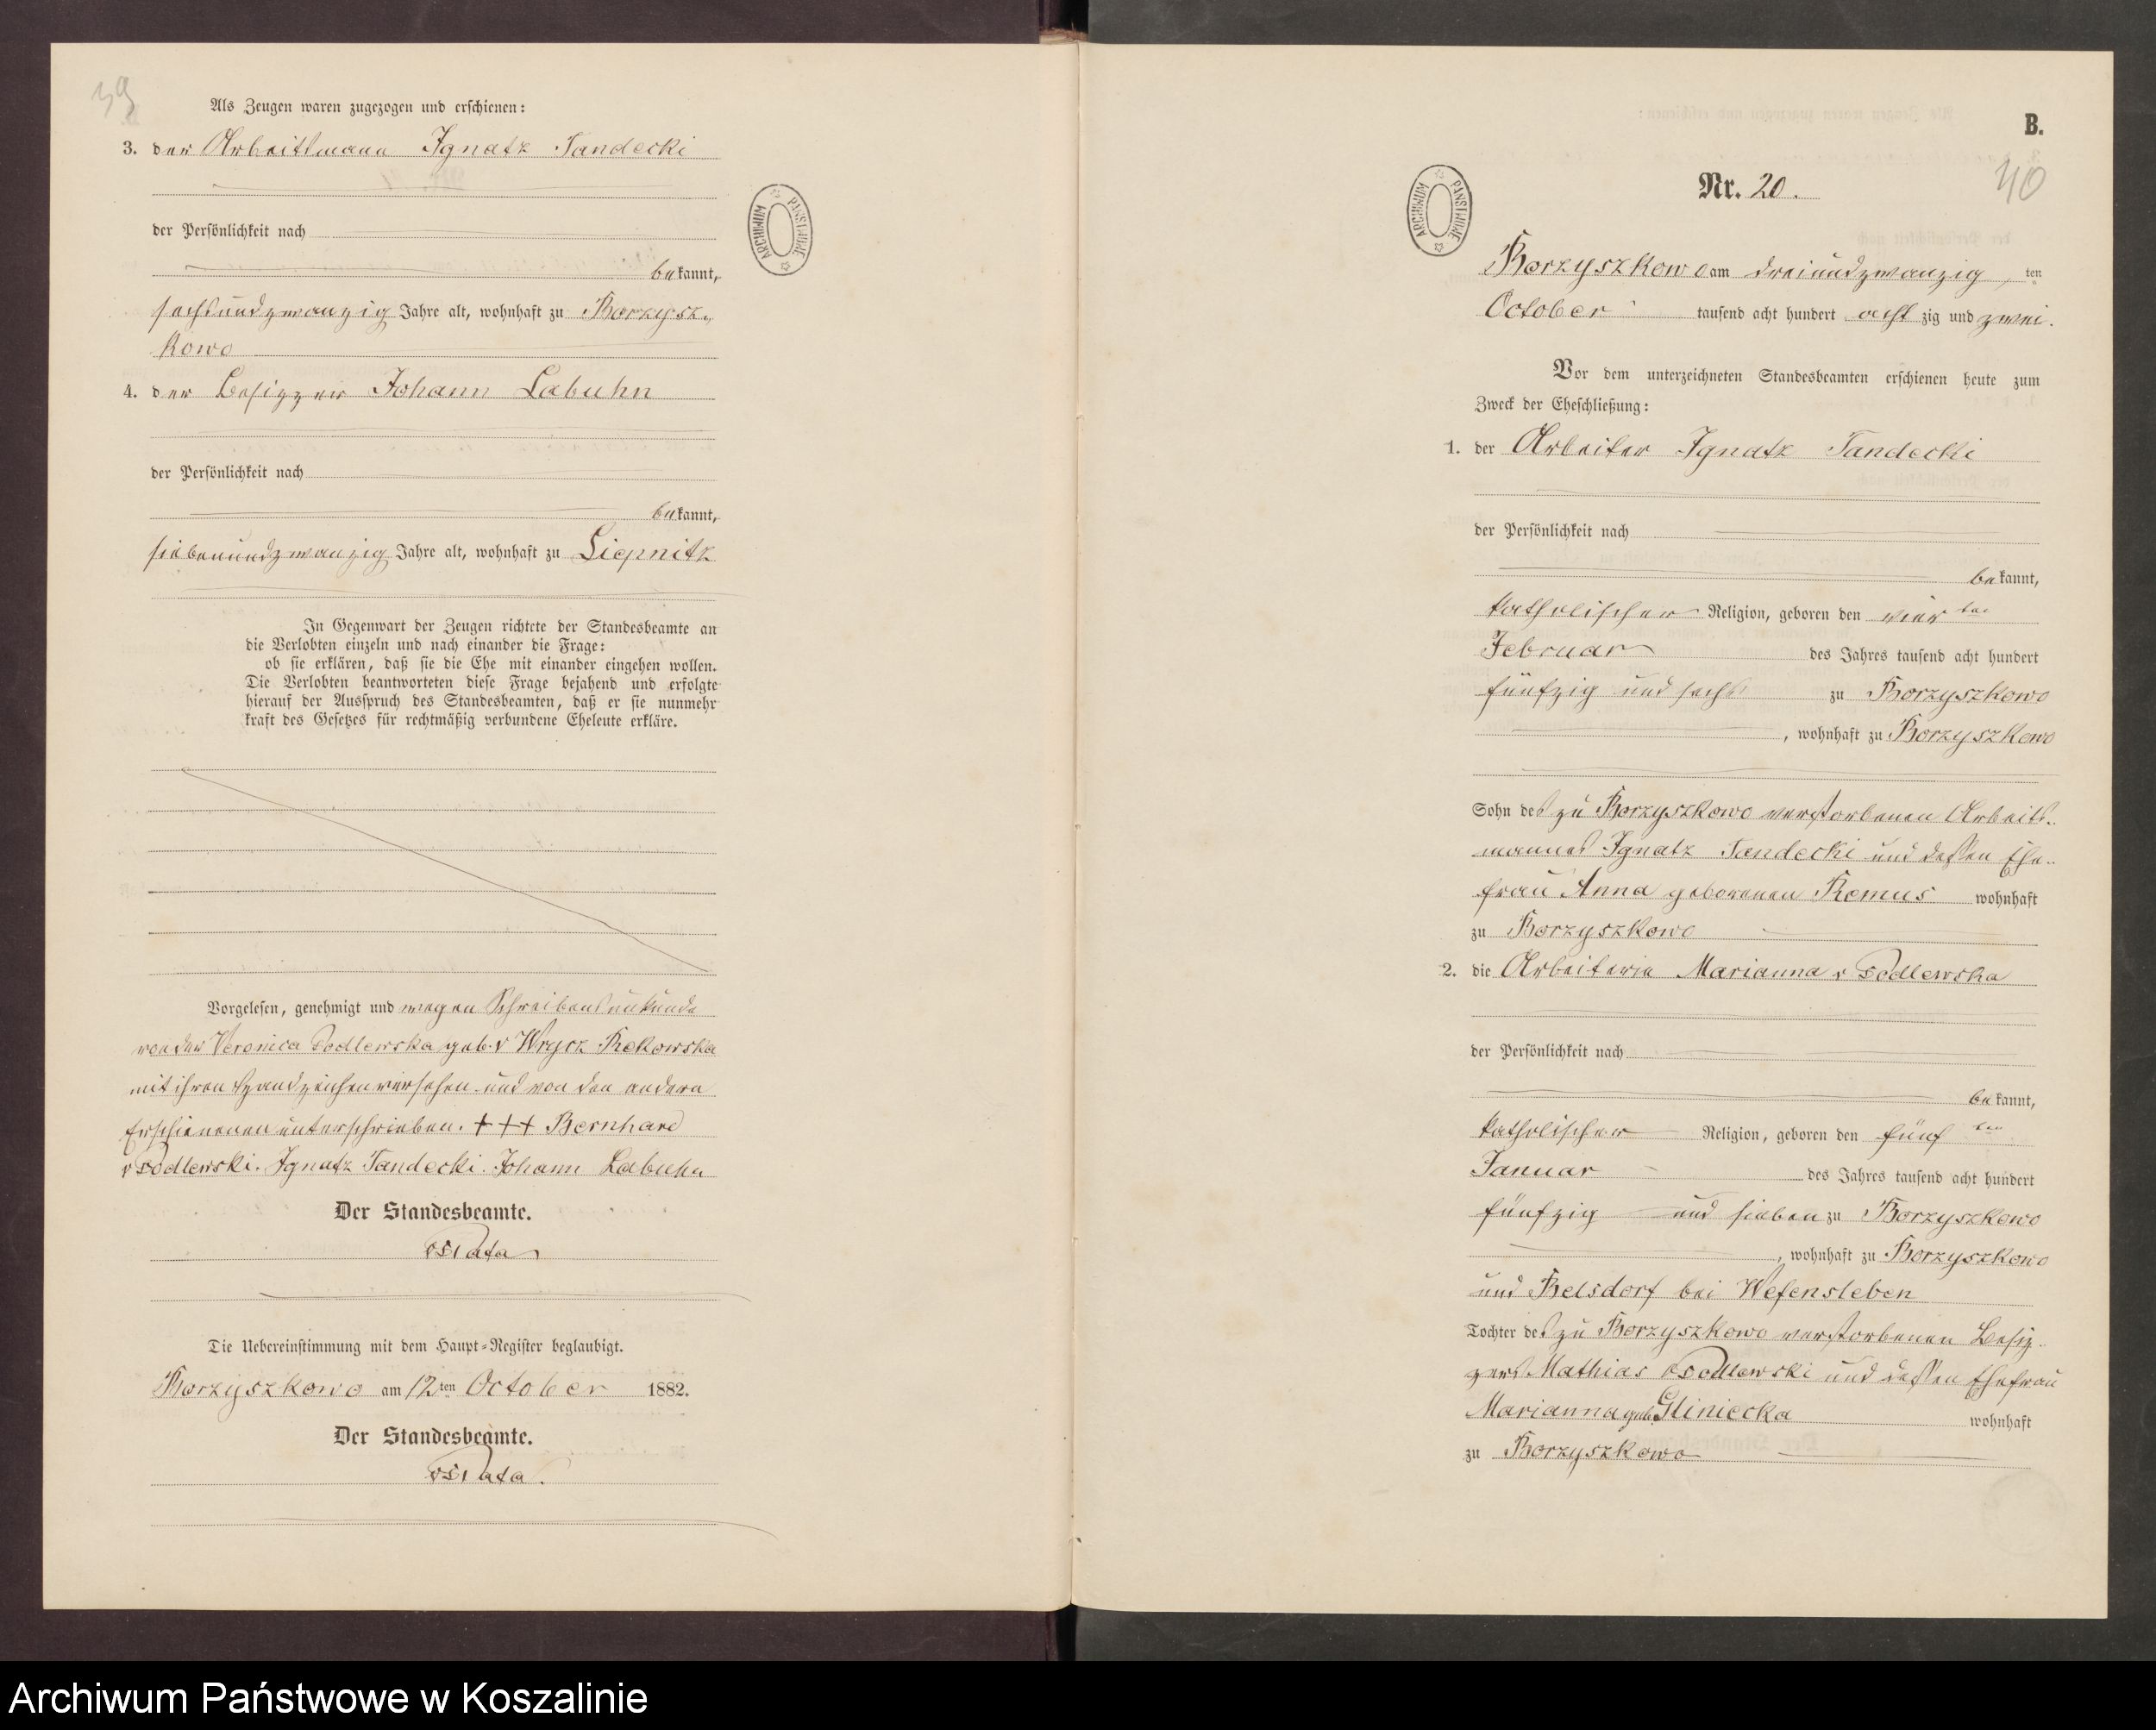 39
Als Zeugen waren zugezogen und erschienen:
3. der Arbeitsmann Ignatz Tandecki
der Persönlichkeit nach
bekannt,
sechsundzwanzig Jahre alt, wohnhaft zu Borzysz-
kowo
4. der Besitzer Johann Labuhn
der Persönlichkeit nach
bekannt,
siebenundzwanzig Jahre alt, wohnhaft zu Liepnitz
In Gegenwart der Zeugen richtete der Standesbeamte an
die Verlobten einzeln und nach einander die Frage:
ob sie erklären, daß sie die Ehe mit einander eingehen wollen.
Die Verlobten beantworteten diese Frage bejahend und erfolgte
hierauf der Ausspruch des Standesbeamten, daß er sie nunmehr
kraft des Gesetzes für rechtmäßig verbundene Eheleute erkläre.
Vorgelesen, genehmigt und wegen Schreibensunkunde
von der Veronica Podlewska geb. v Wrycz Rekowska
mit ihren Handzeichen versehen und von den andern
Erschienenen unterschrieben. +++ Bernhard
v Podlewski. Ignatz Tandecki. Johann Labuhn
Der Standesbeamte.
Die Uebereinstimmung mit dem Haupt-Register beglaubigt.
Borzyszkowo am 12ten October 1882.
Der Standesbeamte.
ARCHIWUM PAŃSTWOWE
B.
40
Nr. 20.
ARCHIWUM PAŃSTWOWE
Borzyszkowo am dreiundzwanzig ten
October tausend acht hundert achtzig und zwei.
Vor dem unterzeichneten Standesbeamten erschienen heute zum
Zweck der Eheschließung:
1. der Arbeiter Ignatz Tandecki
der Persönlichkeit nach
bekannt,
katholischer Religion, geboren den vierten
Februar des Jahres tausend acht hundert
fünfzig und sechs zu Borzyszkowo
, wohnhaft zu Borzyszkowo
Sohn des zu Borzyszkowo verstorbenen Arbeits-
mannes Ignatz Tandecki und dessen Ehe-
frau Anna geborenen Remus wohnhaft
zu Borzyszkowo
2. die Arbeiterin Marianna v Podlewska
der Persönlichkeit nach
bekannt,
katholischer Religion, geboren den fünften
Januar des Jahres tausend acht hundert
fünfzig und sieben zu Borzyszkowo
, wohnhaft zu Borzyszkowo
und Belsdorf bei Wefensleben
Tochter des zu Borzyszkowo verstorbenen Besit-
zers Mathias v Podlewski und dessen Ehefrau
Marianna geb. Gliniecka wohnhaft
zu Borzyszkowo
Archiwum Państwowe w Koszalinie